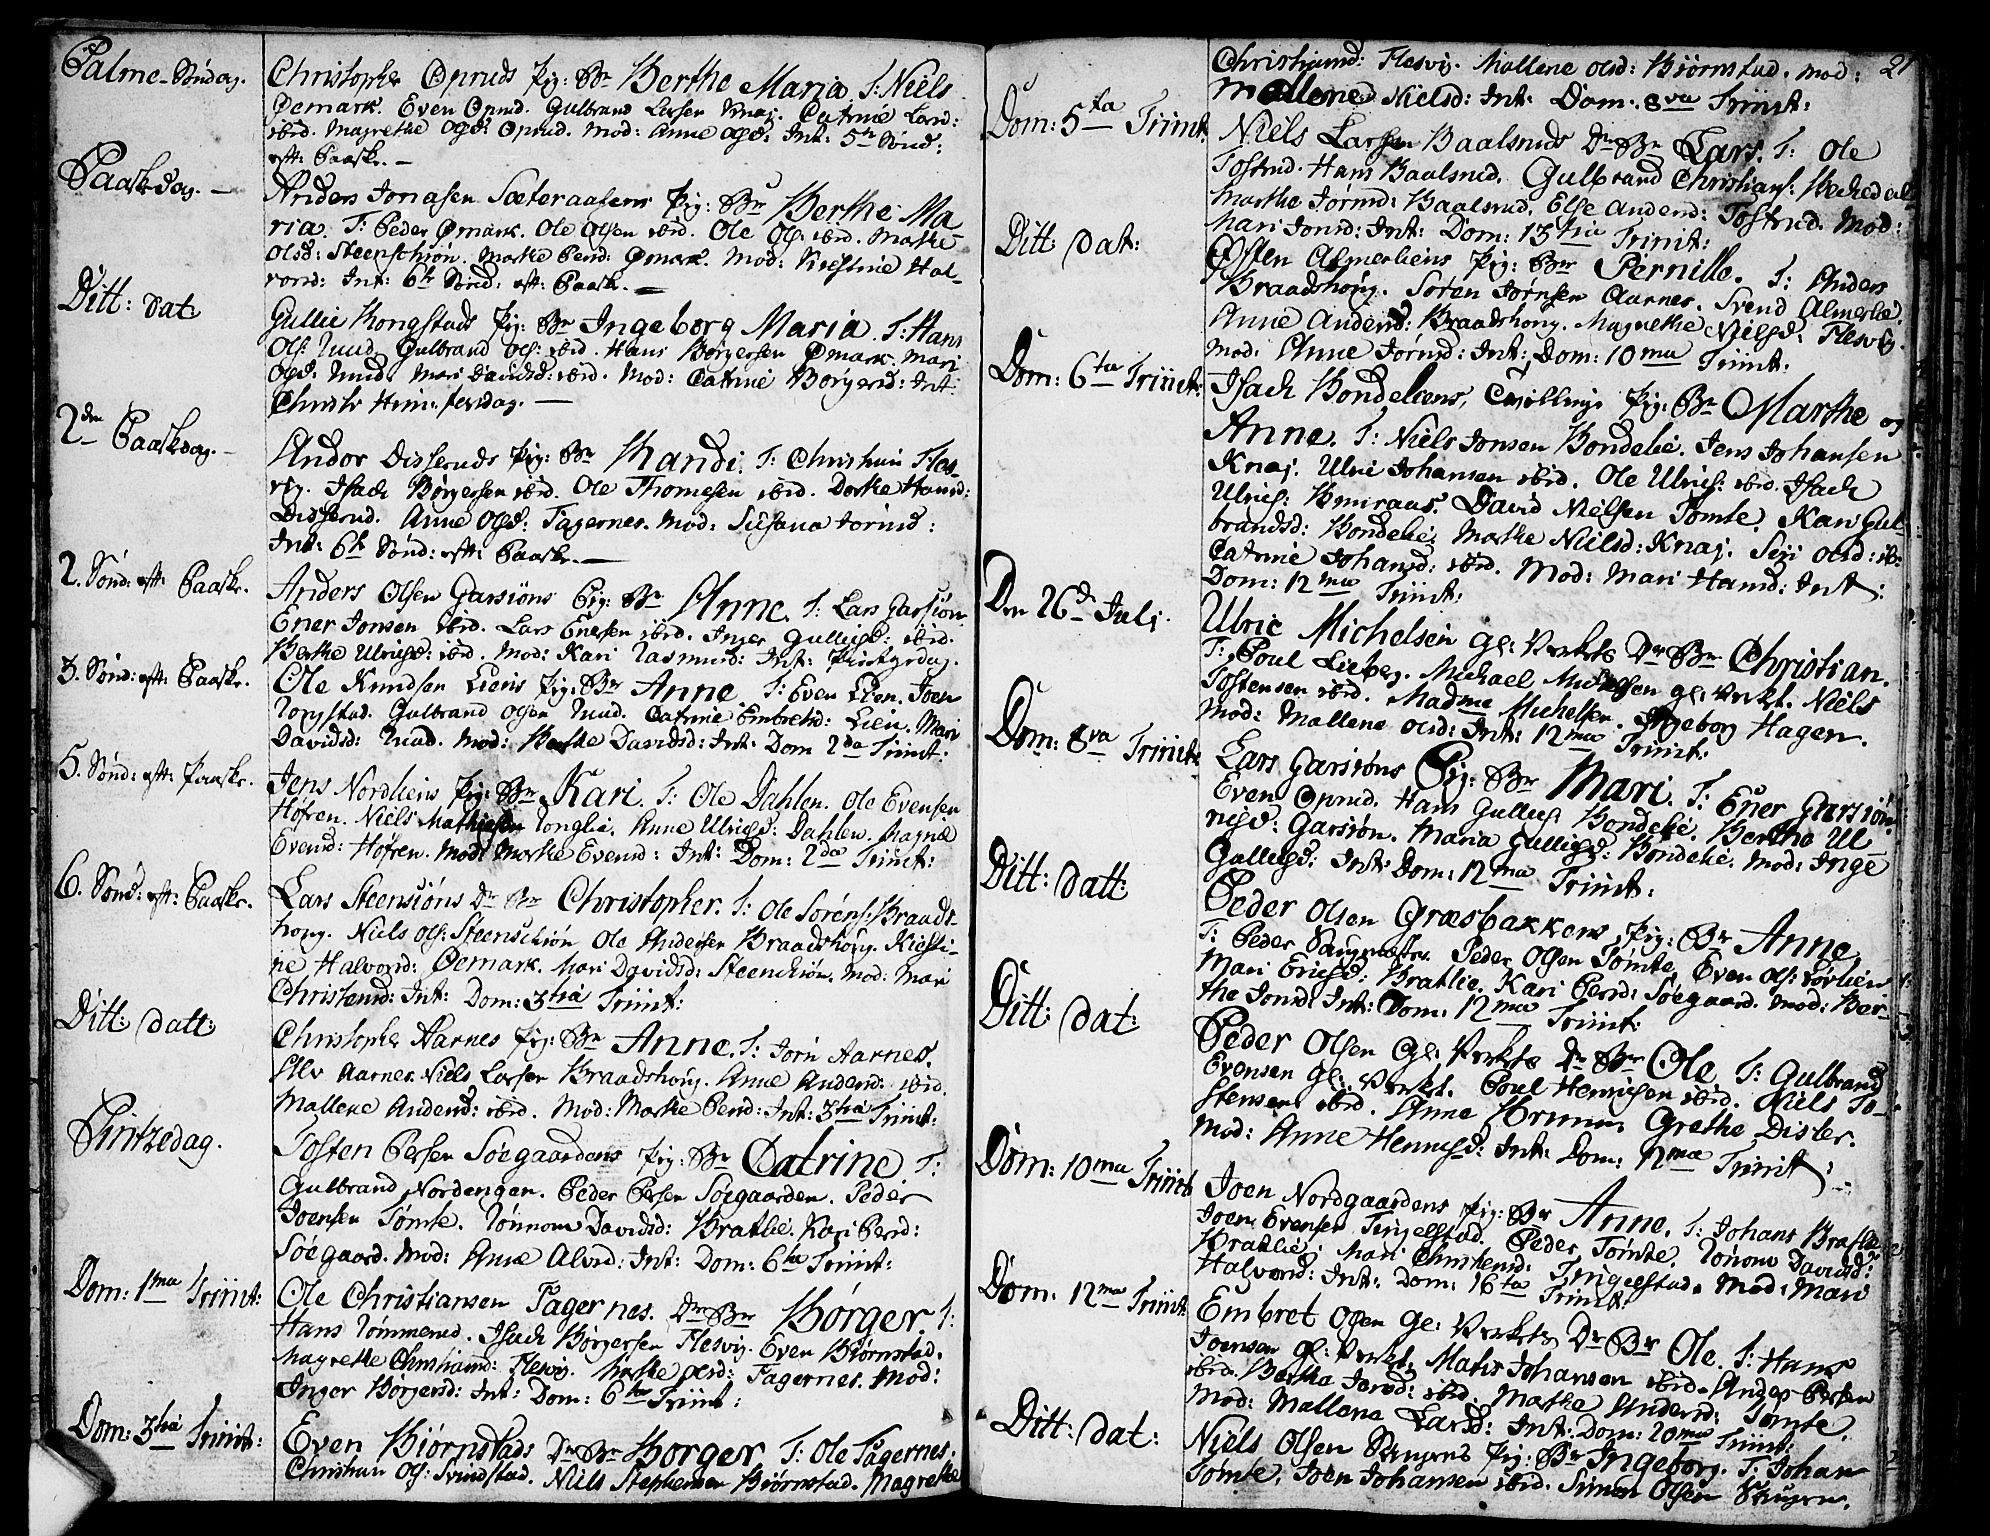 Palme-Søndag.
Christopher Opruds Pig: Bn Berthe Maria T: Niels
Ømark. Even Oprud. Gulbrand Larsen Knaj. Catrine Larsd:
ibid. Magrethe Olsd: Oprud. Mod: Anne Olsd: Int: 5te Sønd:
eft: Paaske. —
Paaskedag. —
Anders Jonasen Sæteraasens Pig: Bn Berthe Ma-
ria. T: Peder Ømark. Ole Olsen ibid. Ole Ols: ibid. Marthe
Olsd: Steenschiøn. Marthe Persd: Ømark. Mod: Kiestine Hal-
vorsd: Int: 6te Sønd: eft: Paask. —
Ditt: dat:
Gullie Kongstads Pig: Bn Ingeborg Maria. T: Hans
Ols: Ruud. Gulbrand Ols: ibid. Hans Børgersen Ømark. Mari
Olsd: Ruud. Mari Davidsd: ibid. Mod: Catrine Børgersd: Int:
Christi Himmelfersdag. —
2den Paaskedag. —
Andor Disseruds Pig: Bn Randi. T: Christian Fles-
vig. Isach Børgersen ibid. Ole Thomesen ibid. Dorthe Hansd:
Disserud. Anne Olsd: Fagernes. Mod: Susana Jørnsd:
Int: 6te Sønd: eft: Paaske. —
2. Sønd: eft: Paaske.
Anders Olsen Garsiøns Pig: Bn Anne. T: Lars Garsiøn
Ener Jonsen ibid. Lars Enersen ibid. Inger Gulligsd: ibid.
Berthe Ulricsd: ibid. Mod: Kari Rasmusd: Int: Pintzedag.
3. Sønd: eft: Paaske.
Ole Knudsen Liens Pig: Bn Anne T: Even Lien. Joen
Gulbrand Olsen Ruud. Catrine Embretsd: Lien. Mari
Davidsd: Ruud. Mod: Berthe Davidsd: Int: Dom 2da Trinit:
5. Sønd: eft: Paaske.
Jens Nordliens Pig: Bn Kari. T: Ole Dahlen. Ole Evensen
Høfren. Niels Mathiesen Ronglie. Anne Ulricsd: Dahlen. Magnæ
Evensd: Høfren. Mod: Marthe Evensd: Int: Dom: 2da Trinit:
6. Sønd: eft: Paaske.
Lars Steensiøns Dr: Bn Christopher. T: Ole Sørens: Braads-
houg. Niels Ols: Steenschiøn Ole Andersen Braadshoug. Kiesti-
ne Halvorsd: Ømark. Mari Davidsd: Steenschiøn. Mod: Mari
Christensd: Int: Dom: 3tia Trinit:
Ditt: datt:
Christopher Aarnes Pig: Bn Anne. T: Jørn Aarnes.
Alv Aarnes. Niels Larsen Braadshoug. Anne Andersd: ibid.
Mallene Andersd: ibid. Mod: Marthe Persd: Int: 3tia Trinit:
Pintzedag.
Tosten Persen Søegaardens Pig: Bn Catrine T:
Gulbrand Nordengen. Peder Persen Søegaarden. Peder
Joensen Tømte. Rønnow Davidsd: Bratlie. Kari Persd:
Søegaard. Mod: Anne Alvsd: Int: Dom: 6ta Trinit:
Dom: 1ma Trinit:
Ole Christiansen Fagernes. Dr: Bn Børger T:
Hans Rømmerud. Isach Børgersen Flesvig. Even Biørnstad.
Magrethe Christiansd: Flesvig. Marthe Olsd: Fagernes. Mod:
Inger Børgersd: Int: Dom: 6ta Trinit:
Dom: 3tia Trinit:
Even Biørnstads Dr: Bn Borger T: Ole Fagernes.
Christian Ols: Svindstad. Niels Stephensen Biørnstad. Magrethe
21
Christiansd: Flesvig. Mallene Olsd: Biørnstad. Mod:
Mallene Nielsd: Int: Dom: 8va Trinit:
Dom: 5ta Trinit:
Niels Larsen Baalsruds Dr: Bn Lars. T: Ole
Tostrud. Hans Baalsrud. Gulbrand Christians:
Marthe Jørnsd: Baalsrud. Else Andersd: Tostrud. Mod:
Mari Jonsd: Int: Dom: 13tia Trinit:
Ditt dat:
Østen Almerliens Pig: Bn Pernille. T: Anders
Braadshoug. Søren Jørnsen Aarnes. Svend Almerlie.
Anne Andersd: Braadshoug. Magrethe Nielsd: Flesvig.
Mod: Anne Jørnsd: Int: Dom: 10ma Trinit:
Dom: 6ta Trinit:
Isach Bondeliens, Tvillinge Pig: Bn Marthe og
Anne. T: Niels Jonsen Bondelie. Jens Johansen
Knaj. Ulric Johansen ibid. Ole Ulrics: ibid. Isach
Ulrics: David Nielsen Tømte. Kari Gul-
brandsd: Bondelie. Marthe Nielsd: Knaj. Siri Olsd: ib:
Catrine Johansd: ibid. Mod: Mari Hansd: Int:
Dom: 12ma Trinit:
Den 26de Julj.
Ulric Michelsen Gl: Verkets Dr: Bn Christian.
T: Poul Lieberg. Michael Michelsen gl: Verket. Niels
Tostensen ibid. Madme Michelsen. Ingeborg Hagen.
Mod: Mallene Olsd: Int: 12ma Trinit:
Dom: 8va Trinit:
Lars Garsiøns Pig: Bn Mari. T: Ener Garsiøn.
Even Oprud. Hans Gulligs: Bondelie. Berthe Ul-
ricsd: Garsiøn. Maria Gulligsd: Bondelie. Mod: Inge
Gulligsd: Int: Dom: 12ma Trinit:
Ditt: datt:
Peder Olsen Græsbakkens Pig: Bn Anne
T: Peder Saugmester. Peder Olsen Tømte. Even Ols: Sørlien
Mari Ericsd: Bratlie. Kari Persd: Søegaard. Mod: Ber-
the Jonsd: Int: Dom: 12ma Trinit:
Ditt: dat:
Peder Olsen Gl: Verkets Dr: Bn Ole. T: Gulbrand
Evensen gl: Verket. Poul Henricsen ibid. Niels To-
stensen ibid. Anne Grethe Disler.
Mod: Anne Henricsd: Int: Dom: 12ma Trinit:
Dom: 10ma Trinit:
Joen Nordgaardens Pig: Bn Anne. T: Johans Bratlie
Joen Evensen Tingelstad. Peder Tømte. Rønnow Davidsd:
Bratlie. Mari Christensd: Tingelstad. Mod: Mari
Halvorsd: Int: Dom: 16ta Trinit:
Dom: 12ma Trinit:
Embret Olsen Gl: Verkets Dr: Bn Ole. T: Hans
Joensen gl: Verket. Matis Johansen ibid. Anders Persen
ibid. Berthe Jonsd: ibid. Marthe Andersd: Tømte.
Mod: Mallene Larsd: Int: Dom: 20ma Trinit:
Ditt: dat:
Niels Olsen Pig: Bn Ingeborg. T: Johan
Tømte. Joen Johansen ibid. Simen Olsen